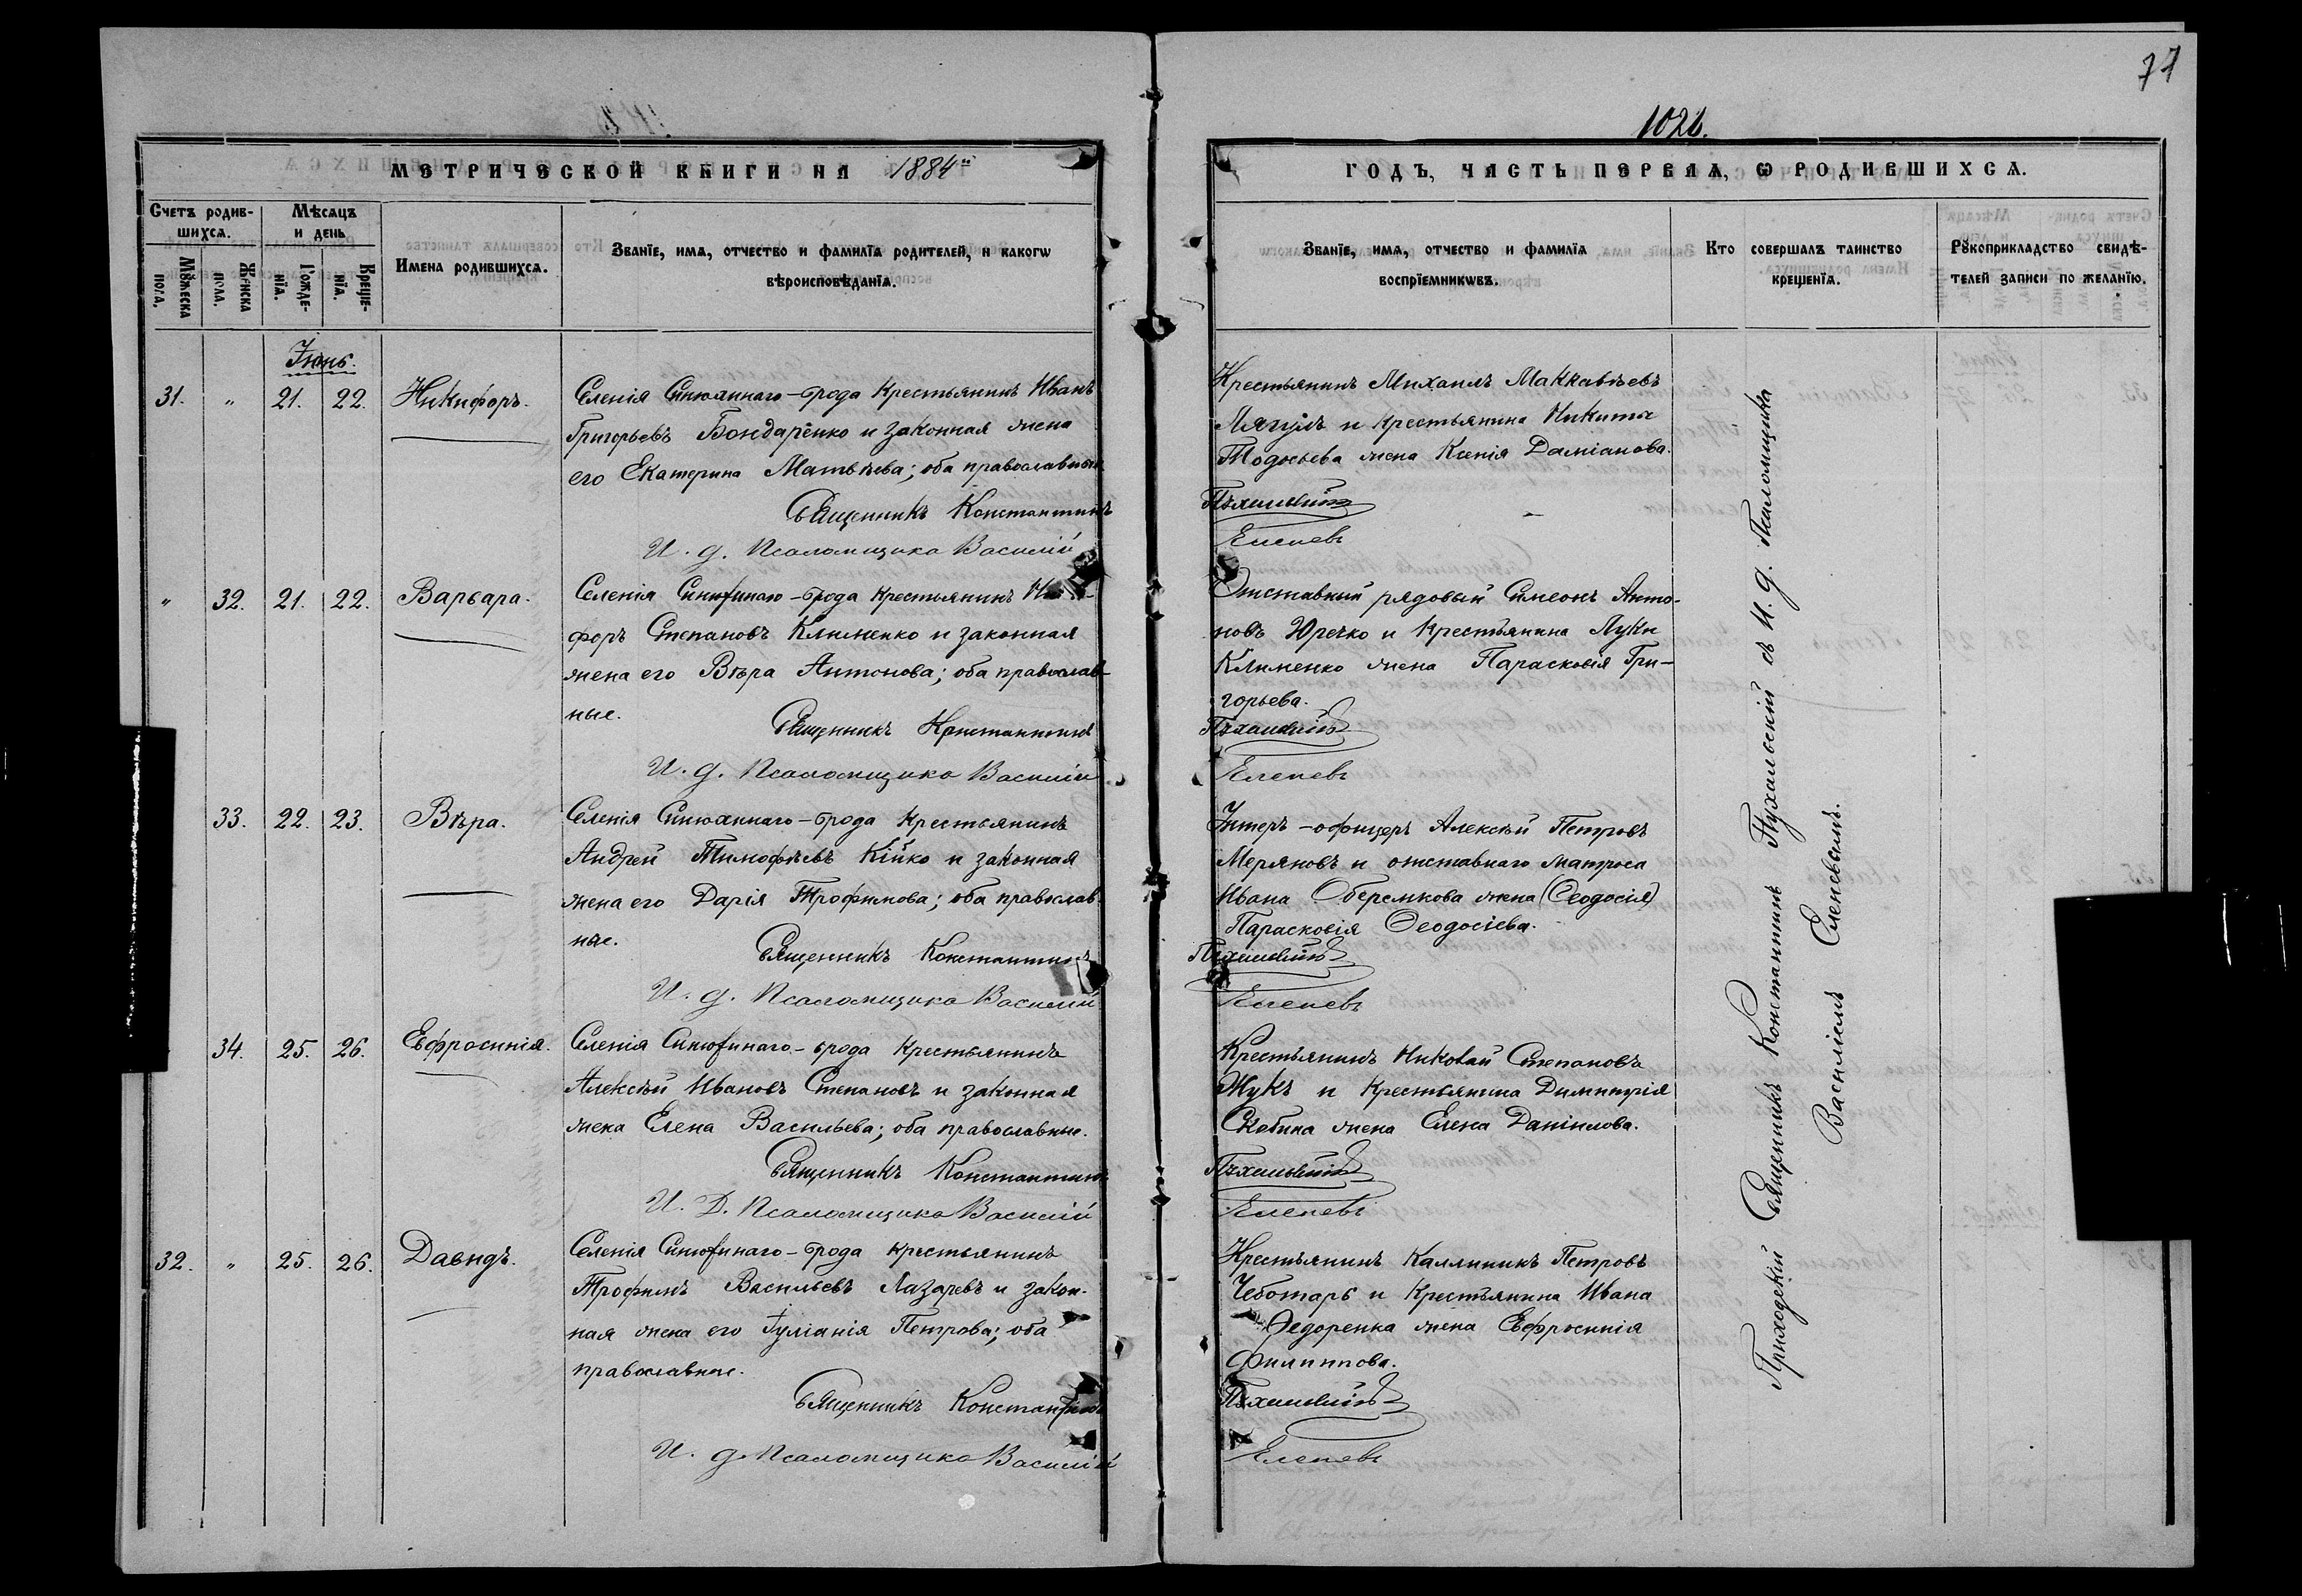 77
1026.
МЕТРИЧЕСКОЙ КНИГИ НА 1884й
ГОДЪ, ЧАСТЬ ПЕРВАЯ, Ѡ РОДИВШИХСѦ.
Счетъ родив-
шихсѧ.
Мѣсѧцъ
и день
Мꙋжеска
пола.
Женска
пола.
Рожде-
нїѧ.
Креще-
нїѧ.
Имена родившихсѧ.
Званїе, имѧ, отчество и фамилїѧ родителей, и какогѡ
вѣроисповѣданїѧ.
Званїе, имѧ, отчество и фамилїѧ
воспрїемникѡвъ.
Кто совершалъ таинство
крещенїѧ.
Рꙋкоприкладство свидѣ-
телей записи по желанїю.
Іюнь.
31. " 21. 22. Никифоръ.
Селенія Синюхинаго-брода крестьянинъ Иванъ
Григорьевъ Бондаренко и законная жена
его Екатерина Матвѣева; оба православные
Священникъ Константинъ
И. д. Псаломщика Василій
Крестьянинъ Михаилъ Маккавѣевъ
и крестьянина Никиты
Тодосьева жена Ксенія Даміанова.
Елепевъ
" 32. 21. 22. Варвара.
Селенія Синюхинаго-брода крестьянинъ
форъ Степановъ Клименко и законная
жена его Вѣра Антонова; оба православ-
ные.
Священникъ Константинъ
И. д. Псаломщика Василій
Отставный рядовый Симеонъ Анто-
новъ Юречко и крестьянина Луки
Клименко жена Парасковія Гри-
горьева.
Елепевъ
33. 22. 23. Вѣра.
Селенія Синюхинаго-брода крестьянинъ
Андрей Тимофѣевъ Кійко и законная
жена его Дарія Трофимова; оба православ-
ные.
Священникъ Константинъ
И. д. Псаломщика Василій
Унтеръ-офицеръ Алексѣй Петровъ
Меряновъ и отставнаго матроса
Ивана Оберемкова жена (Ѳеодосія)
Парасковія Ѳеодосіева.
Елепевъ
34. 25. 26. Евфросинія.
Селенія Синюхинаго-брода крестьянинъ
Алексѣй Ивановъ Степановъ и законная
жена Елена Васильева; оба православные.
Священникъ Константинъ
И. Д. Псаломщика Василій
Крестьянинъ Николай Степановъ
Жукъ и крестьянина Димитрія
Скобина жена Елена Даніилова.
Елепевъ
32. " 25. 26. Давидъ.
Селенія Синюхинаго-брода крестьянинъ
Трофимъ Васильевъ Лазаревъ и закон-
ная жена его Іуліанія Петрова; оба
православные.
Священникъ Константинъ
И. д. Псаломщика Василій
Крестьянинъ Каллиникъ Петровъ
Чеботарь и крестьянина Ивана
Ѳедоренка жена Евфросинія
Филиппова.
Елепевъ
Приходскій Священникъ Константинъ съ И. д. Псаломщика
Василіемъ Елепевымъ.